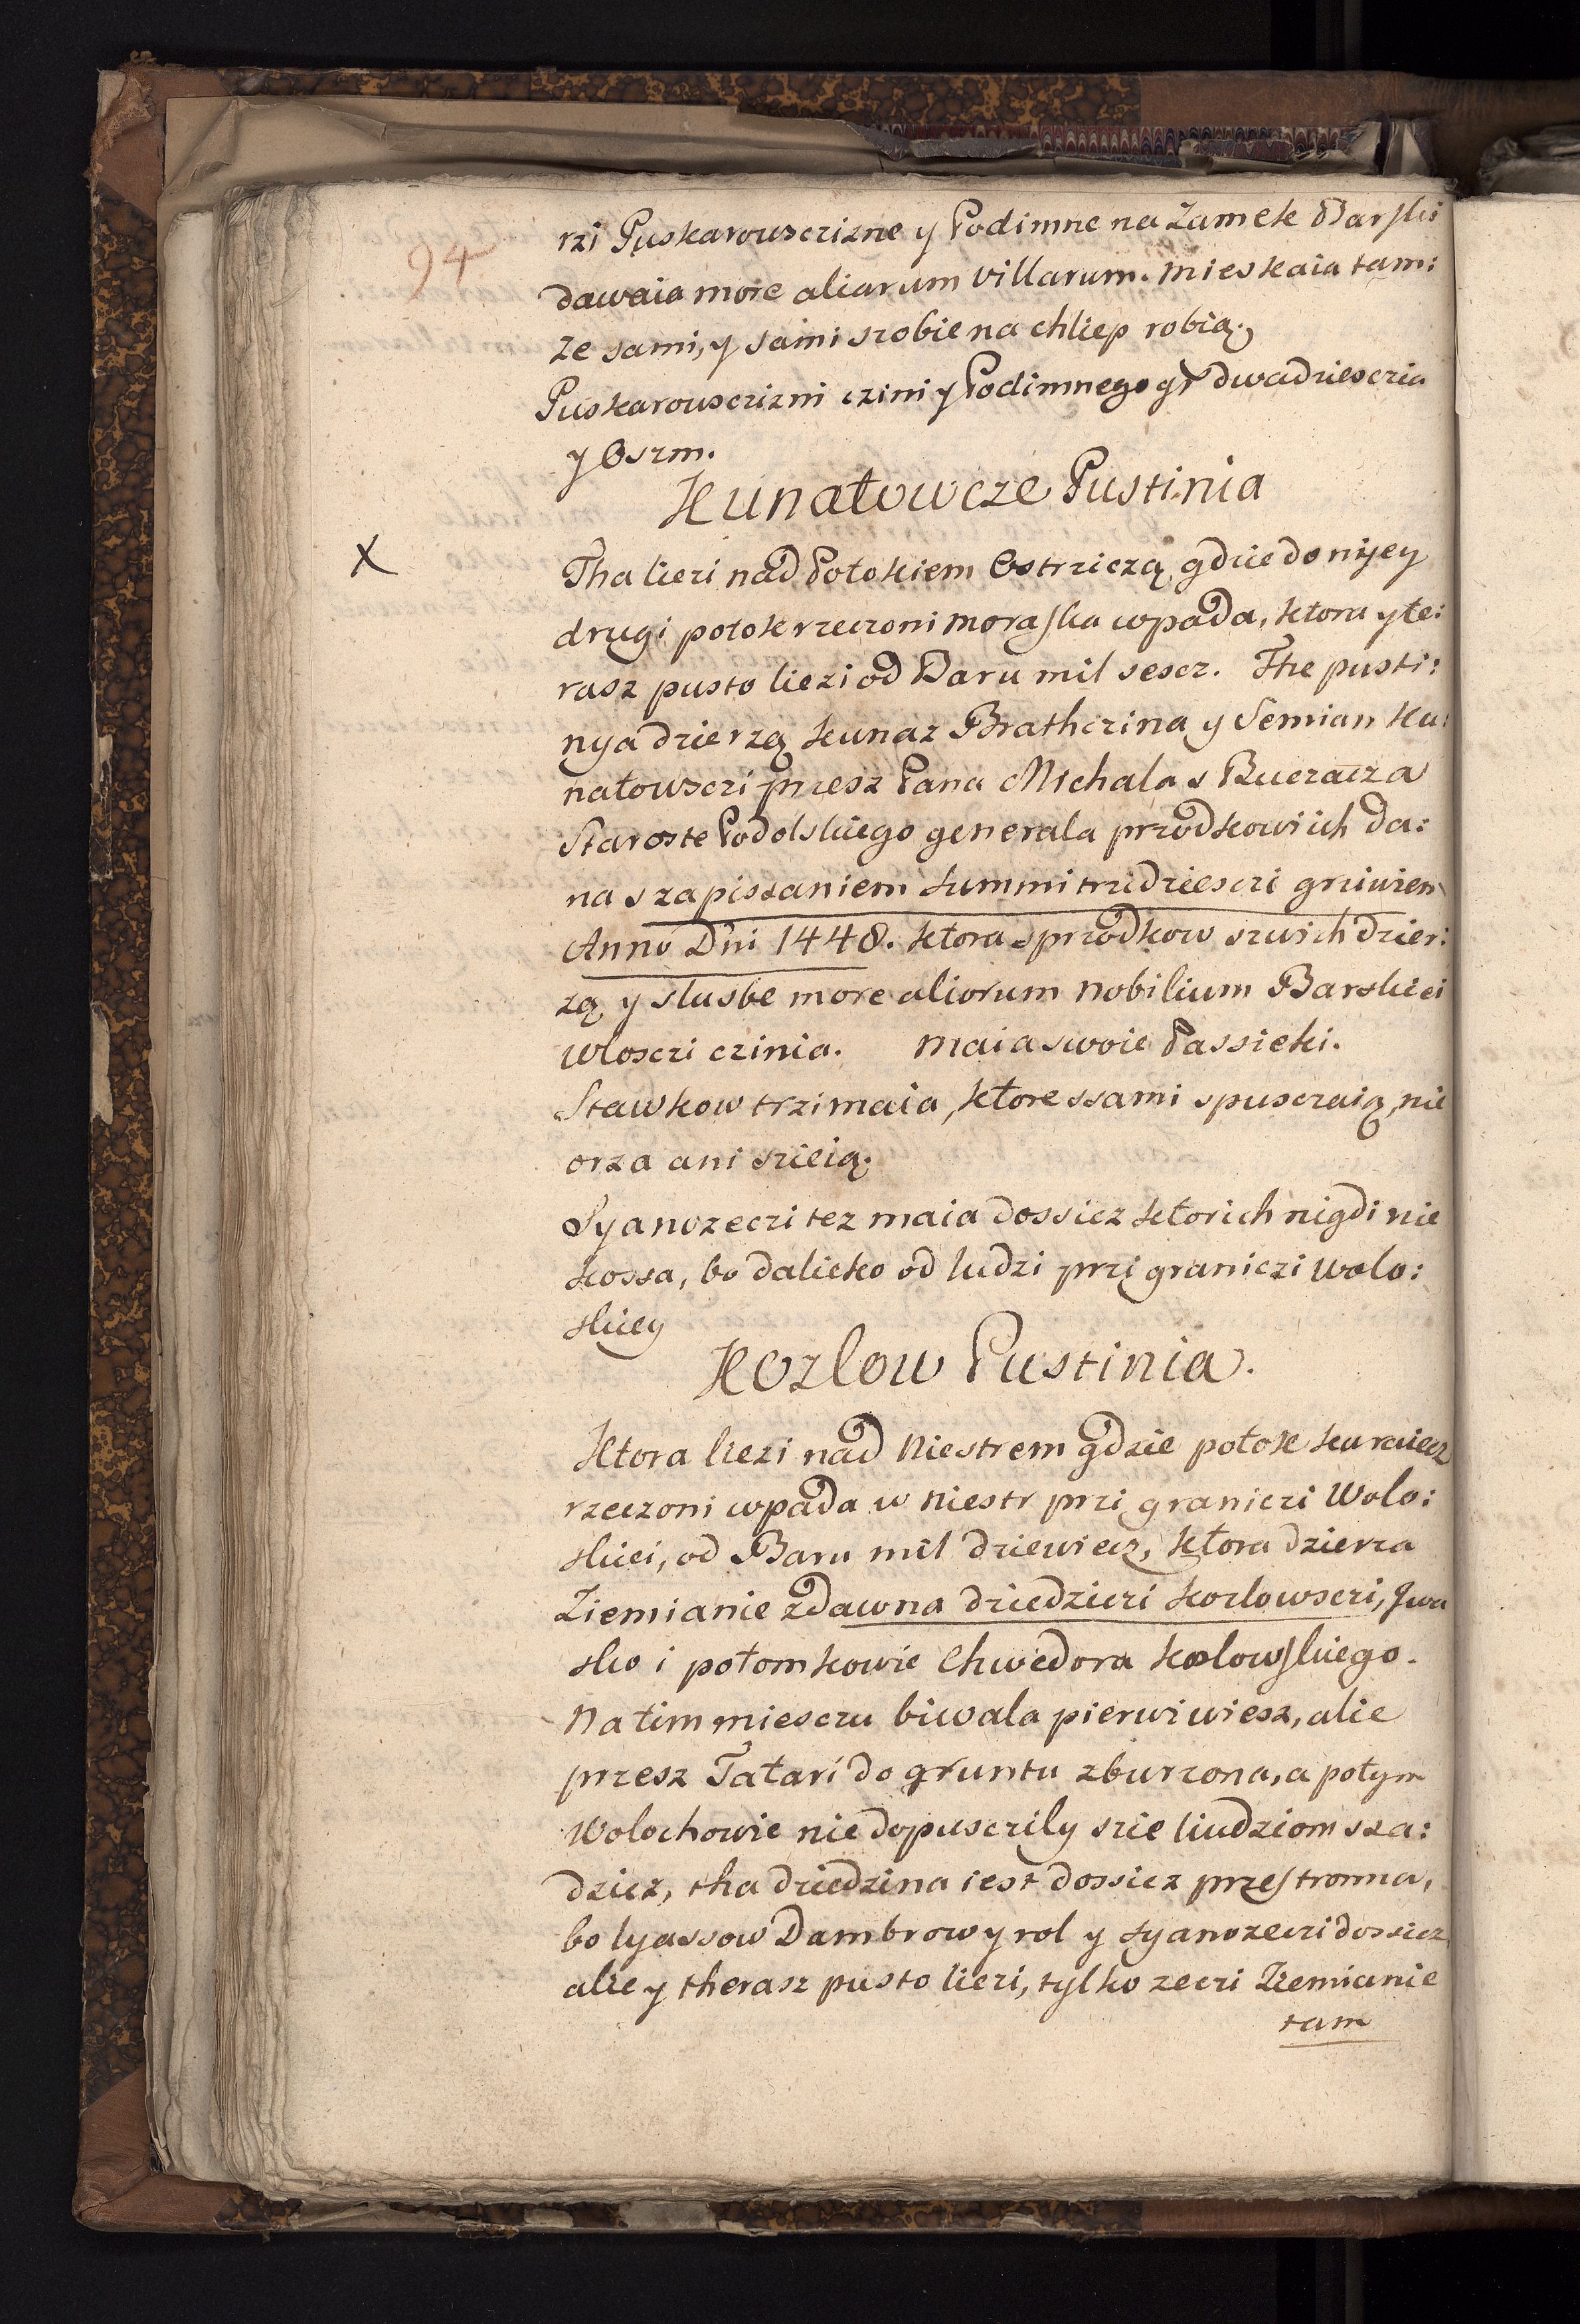 94
rzi Puskarowscrizne y Podimne na Zamek Barski
dawaia more aliarum villarum. mieskaia tam:
ze sami, y sami szobie na chliep robią.
Puskarowscrizni czini y Podimnego gr dwadziescia
y Oszm.
Kunatowcze Pustinia
X
Tha liezi nad Potokiem Ostrziczą gdzie do nijey
drugi potok rzeczoni Moraska wpada, ktora y te:
rasz pusto liezi od Baru mil sescz. The pusti:
nya dzierzą Kunaz Bratherina y Semian Ku:
natowsczi przesz Pana Michala s Buczacza
Staroste Podolskiego generala przodkowi ich da:
na s zapissaniem summi trzidziesci grziwien
Anno Dni 1448. ktora s przodkow szwich dzier:
zą y slusbe more aliorum nobilium Barskiei
wlosczi czinia. Maia swoie Passieki.
Stawkow trzi maia, ktore ssami spusczaią, nie
orza ani szieią.
Syanozeczi tez maia dossicz ktorich nigdi nie
kossa, bo dalieko od ludzi przi graniczi wolo:
skiey
Kozlow Pustinia.
Ktora liezi nad Niestrem gdzie potok kurwiecz
rzeczoni wpada w Niestr przi graniczi Wolo:
skiei, od Baru mil dziewiecz, ktora dzierza
Ziemianie zdawna dziedziczi Kozlowsczi, Jwa
sko i potomkowie Chwedora Kozlowskiego.
Na tim miesczu biwala pierwi wiesz, alie
przesz Tatari do gruntu zburzona, a potym
Wolochowie nie dopusczily szie liudziom sza:
dzicz, tha dziedzina iest dossicz przestronna,
bo lyassow Dambrow y rol y syanozeczi dossicz
alie y therasz pusto liezi, tylko zeczi Ziemianie
tam